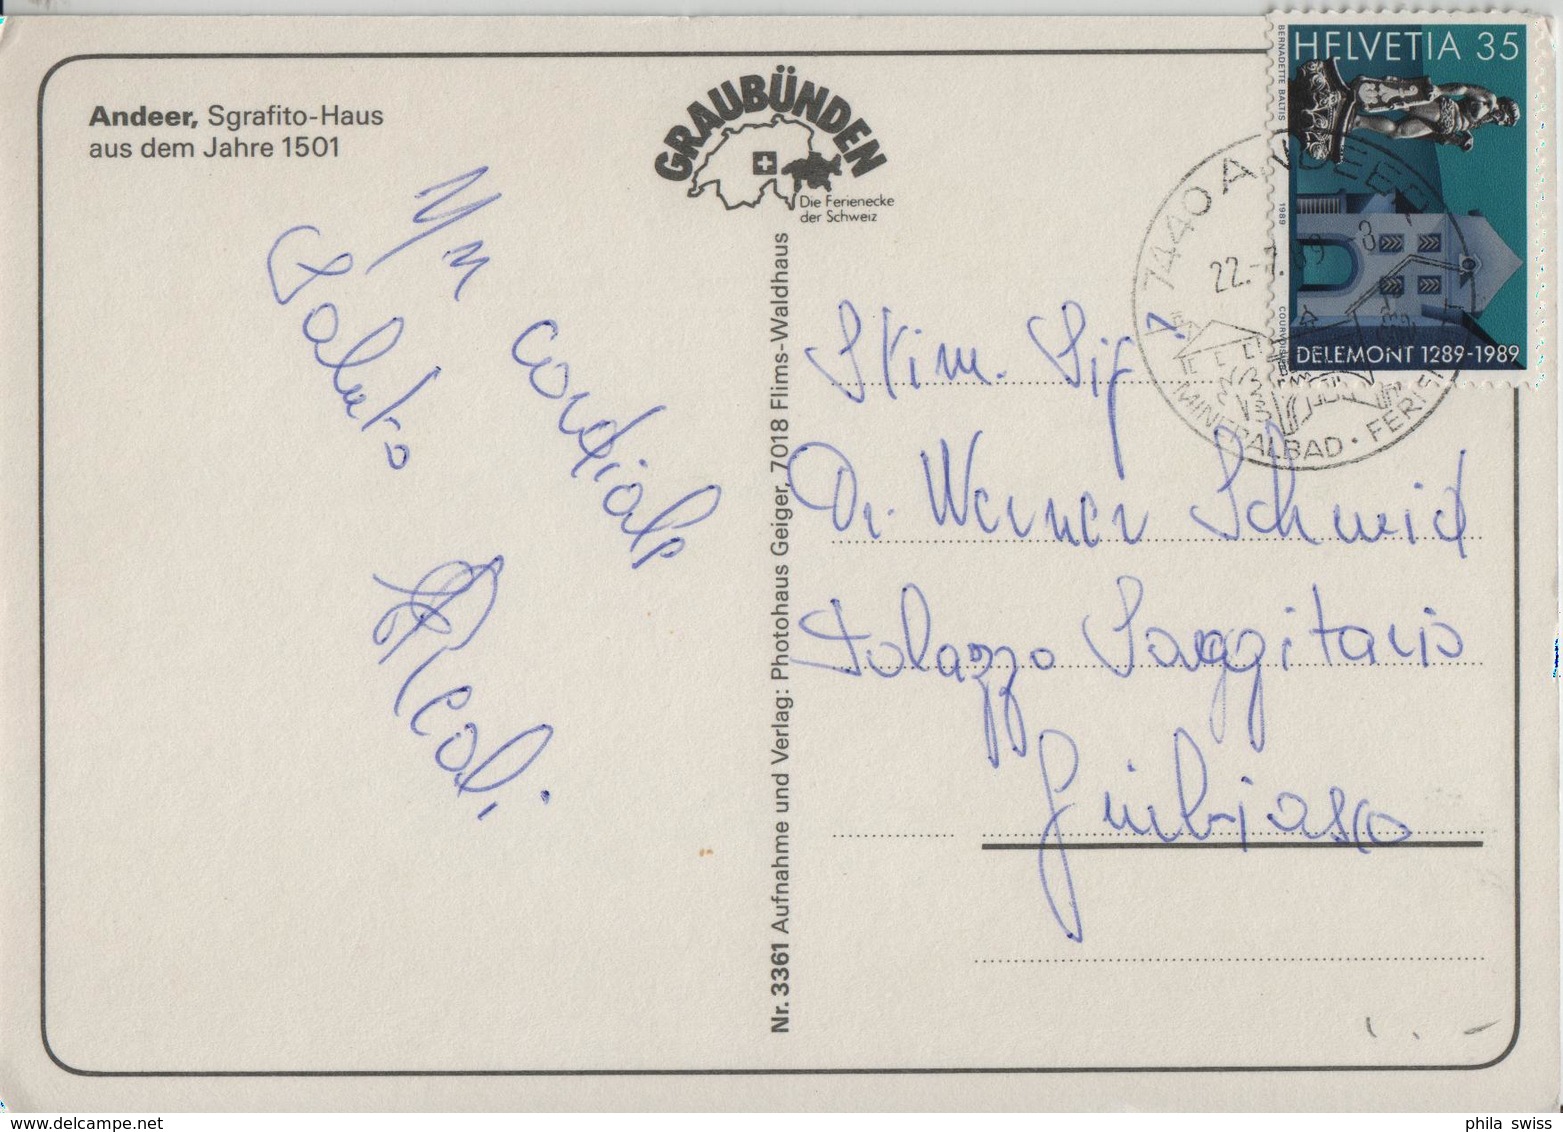 Andeer, Sgrafito-Haus
aus dem Jahre 1501
GRAUBÜNDEN
Die Ferienecke
der Schweiz
HELVETIA 35
BERNADETTE BALTIS
1989
COURVOISIER
DELEMONT 1289-1989
7440 ANDEER
22.-7.89-8
MINERALBAD • FERIEN
Un cordiale
Saluto
Nr. 3361 Aufnahme und Verlag: Photohaus Geiger, 7018 Flims-Waldhaus
Stim. Sig
Dr. Werner Schmid
Palazzo Saggitario
Giubiasco
phila swiss